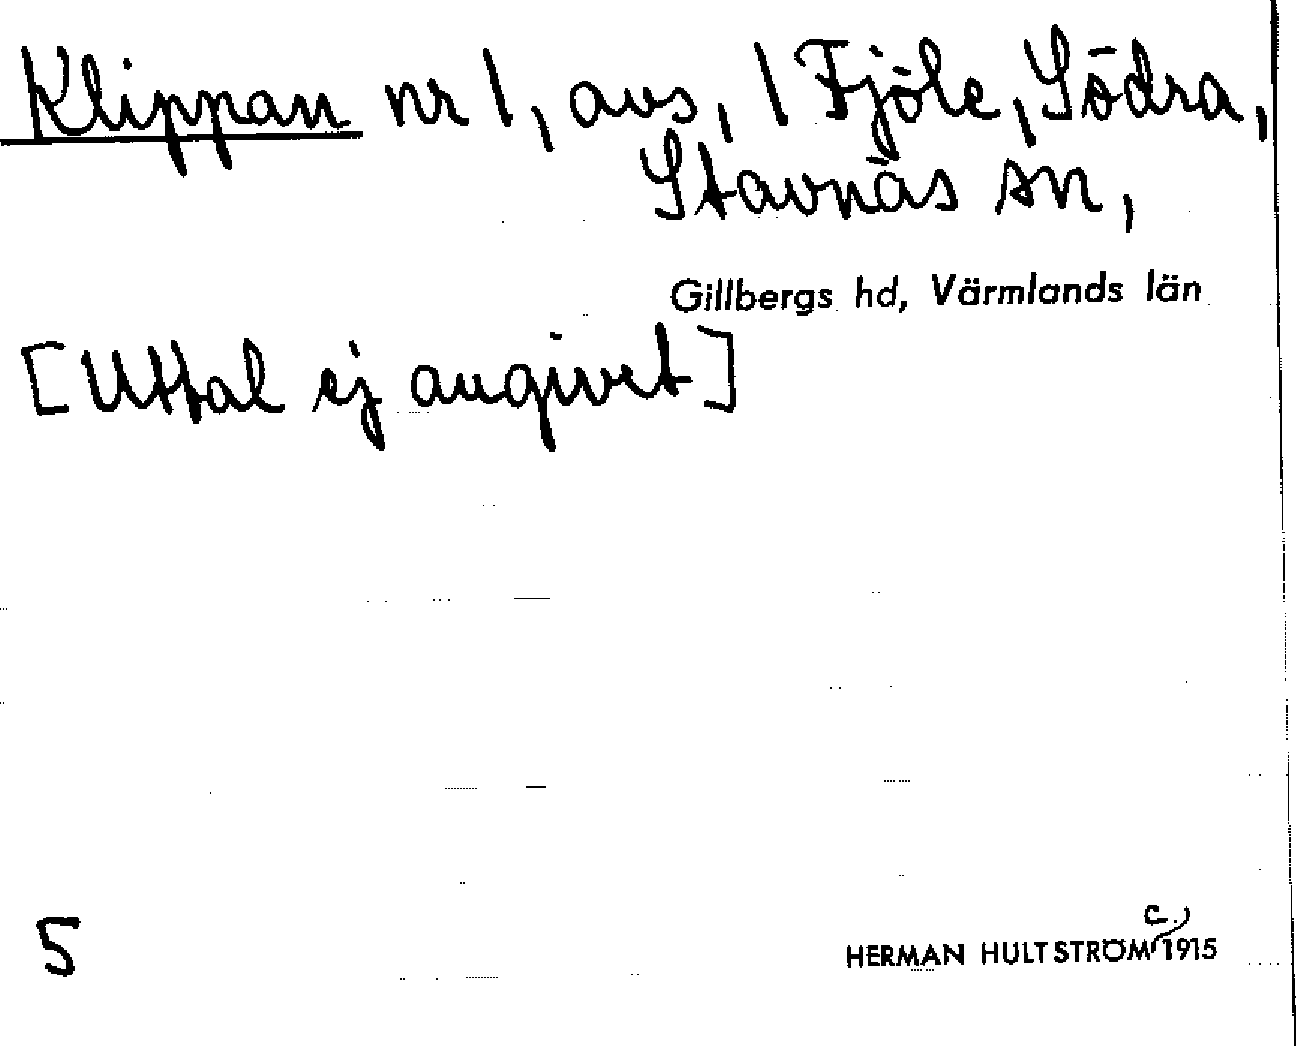 Klippan nr 1, avs, 1 Fjöle, Södra,
Stavnäs sn,
Gillbergs hd, Värmlands län
[Uttal ej angivet]
5
c.
HERMAN HULTSTRÖM 1915